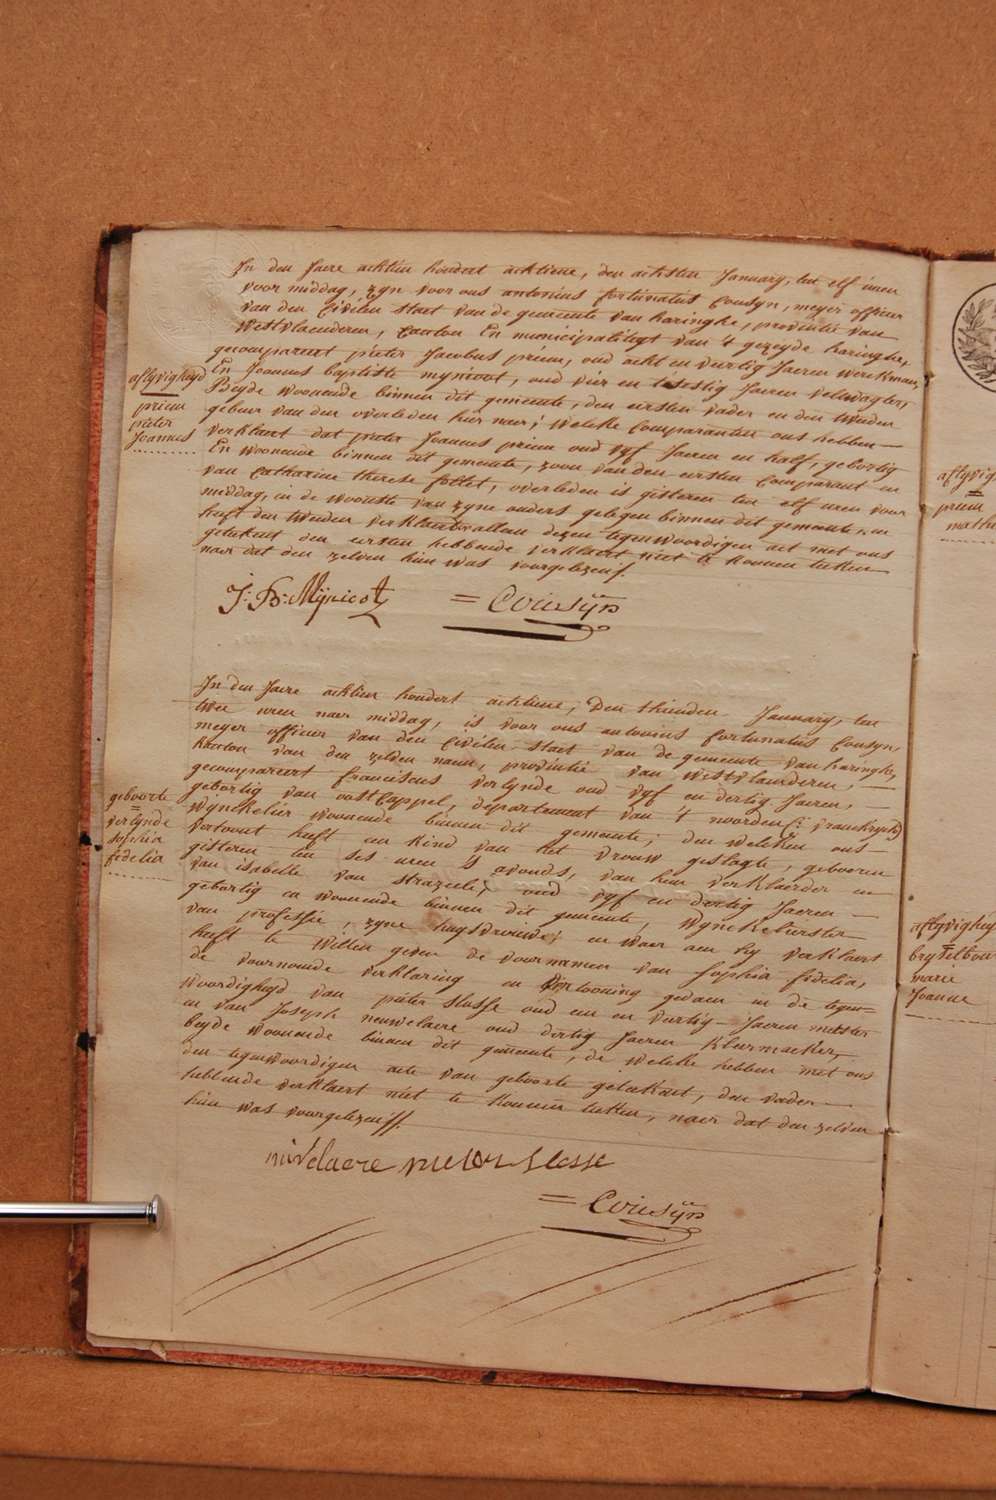 In den Jaere achtien hondert achtiene, den achsten January, ten elf uren
voor middag, zyn voor ons antonius fortunatus Cousyn, meyer officier
van den Civilen staet van de gemeente van haringhe, provintie van
Westvlaenderen, Canton En municipaliteyt van 't gezeyde haringhe,
gecompareert pieter Jacobus prium, oud acht en veertig Jaeren werckman,
En Joannes baptiste mynicot, oud vier en sestig Jaeren veldwagter,
Beyde woonende binnen dit gemeente, den eersten vader en den tweeden
gebeur van den overleden hier naer; welcke Comparanten ons hebben
verklaert dat pieter Joannes prium oud vyf Jaeren en half, geboortig
En woonende binnen dit gemeente, zoon van den eersten Comparant en
van Catharine therese follet, overleden is gisteren ten elf uren voor
middag, in de woonste van zyne ouders gelegen binnen dit gemeente, en
heeft den tweeden verklaerder alleen dezen tegenwoordigen act met ons
geteekent den eersten hebbende verklaert niet te konnen teeken
naer dat den zelven hun was voorgelezen.
aflyvigheyd
prium
pieter
Joannes
J: B: Mÿnicot
= Cousÿn
In den Jaere achtien hondert achtiene, Den thienden January, ten
twee uren naer middag, is voor ons antonius fortunatus Cousyn,
meyer officier van den Civilen staet van de gemeente van haringhe,
Kanton van den zelven naem, provintie van Westvlaenderen,
gecompareert franciscus verlynde oud vyf en dertig Jaeren,
gebortig van oostCappel, département van 't noorden (: vranckryk)
Wynckelier woonende binnen dit gemeente; den welcken ons
vertoont heeft een kind van het vrouw geslagte, geboren
gisteren ten ses uren 's avonds, van hem verklaerder en
van isabelle van strazeele, oud vyf en dertig Jaeren
gebortig en woonende binnen dit gemeente, Wynckelierster
van professie, zyne huysvrouwe; en waer aen hy verklaert
heeft te willen geven de voornamen van sophia fidelia,
de voornoemde verklaring en vertooning gedaen in de tegen=
woordigheyd van pieter slosse oud een en veertig Jaeren metser
en van Joseph neuwelaere oud dertig Jaeren kleermaeker,
beyde woonende binnen dit gemeente, de welcke hebben met ons
den tegenwoordigen acte van geboorte geteekent, den vader
hebbende verklaert niet te konnen teeken, naer dat den zelven
hun was voorgelezen.
geboorte
=
verlynde
sophia
fidelia
slosse
= Cousÿn
aflyvig
prium
mathe
aflyvighey
=
marie
Joanne